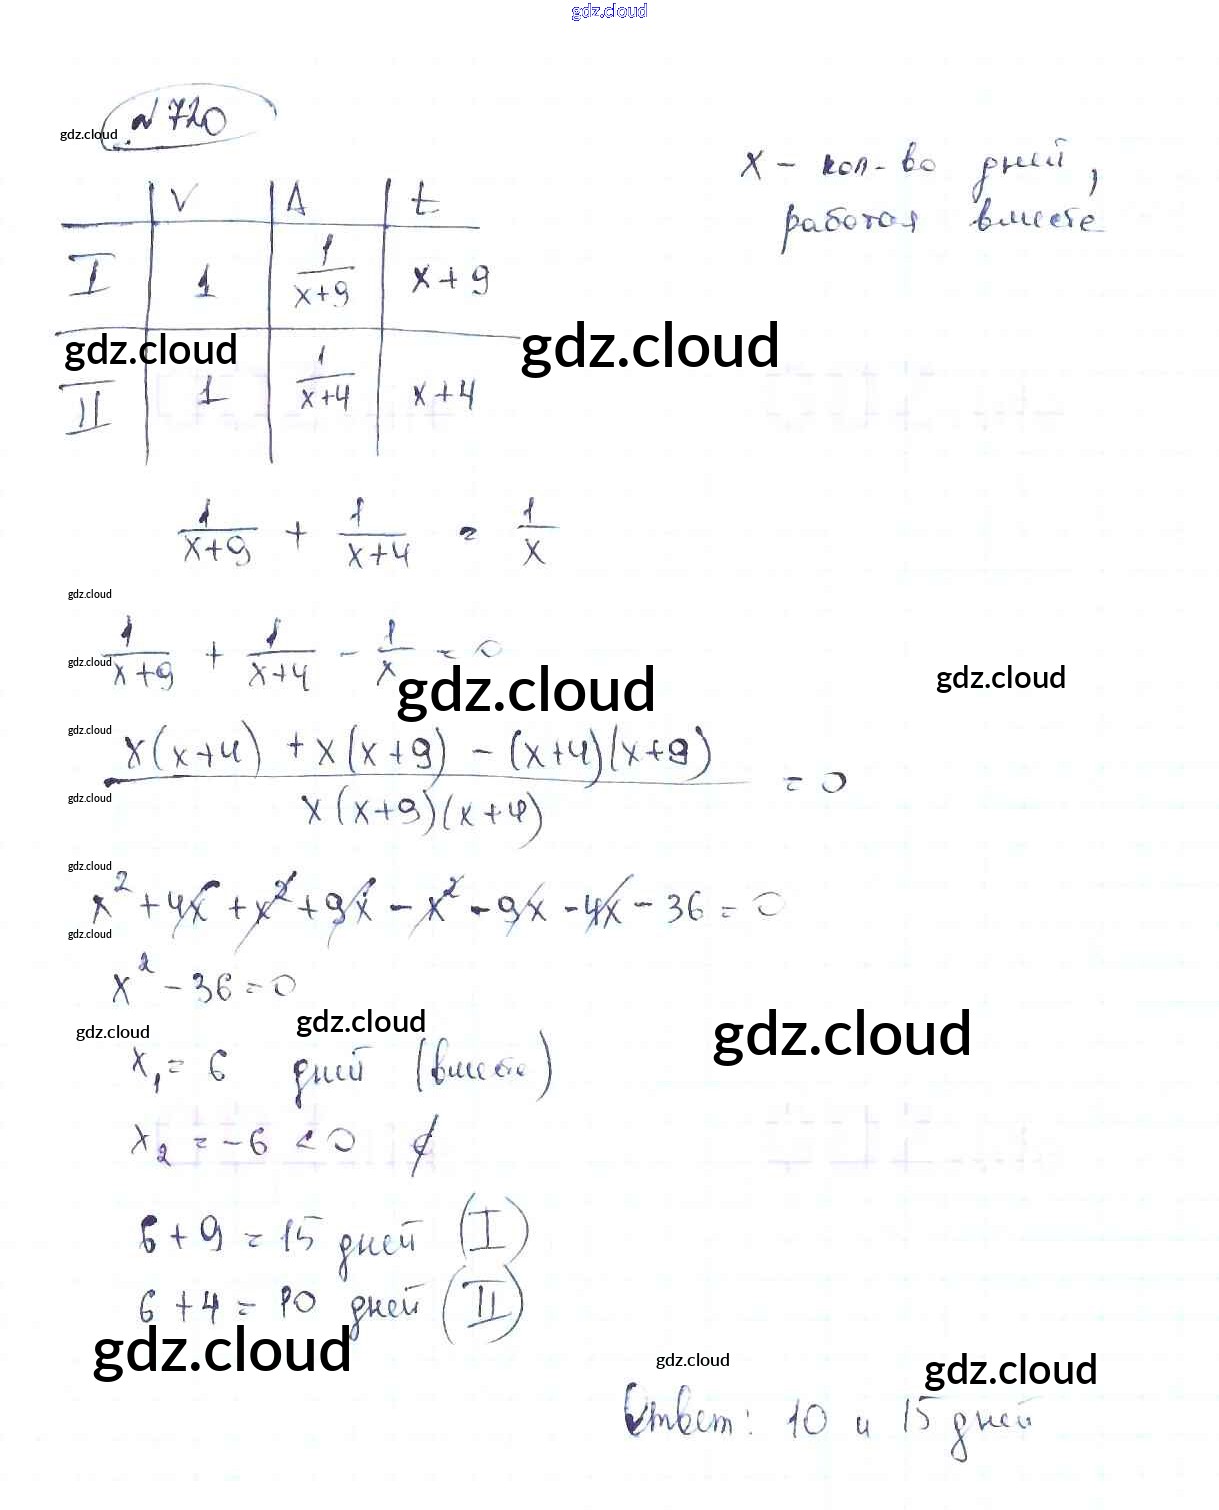 gdz.cloud
№ 720
gdz.cloud
x – кол-во дней,
работая вместе
V A t
I 1 1/(x+9) x+9
gdz.cloud gdz.cloud
II 1 1/(x+4) x+4
1/(x+9) + 1/(x+4) = 1/x
gdz.cloud
1/(x+9) + 1/(x+4) – 1/x = 0
gdz.cloud gdz.cloud gdz.cloud
gdz.cloud
(x(x+4) + x(x+9) – (x+4)(x+9))/(x(x+9)(x+4)) = 0
gdz.cloud
gdz.cloud
x² + 4x + x² + 9x – x² – 9x – 4x – 36 = 0
gdz.cloud
x² – 36 = 0
gdz.cloud gdz.cloud gdz.cloud
x₁ = 6 дней (вместе)
x₂ = –6 < 0 ∉
6 + 9 = 15 дней (I)
6 + 4 = 10 дней (II)
gdz.cloud gdz.cloud gdz.cloud
Ответ: 10 и 15 дней